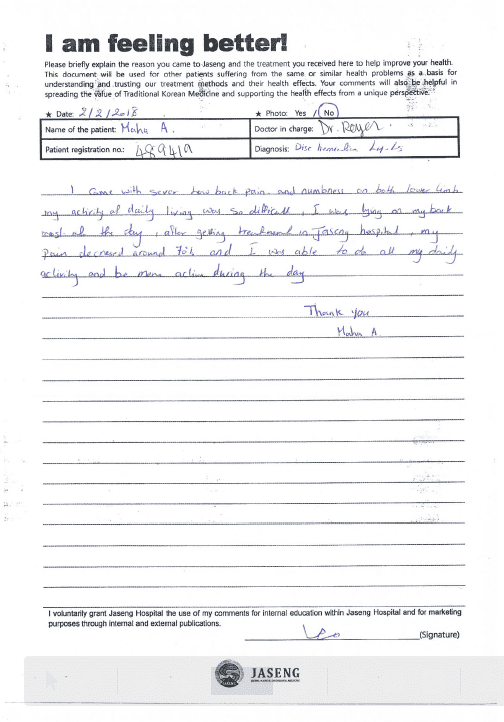 I am feeling better!
Please briefly explain the reason you came to Jaseng and the treatment you received here to help improve your health.
This document will be used for other patients suffering from the same or similar health problems as a basis for
understanding and trusting our treatment methods and their health effects. Your comments will also be helpful in
spreading the value of Traditional Korean Medicine and supporting the health effects from a unique perspective.
★ Date: 2/2/2018 ★ Photo: Yes / No
Name of the patient: Maha A. Doctor in charge: Dr. Royer.
Patient registration no.: Diagnosis: Disc herniation L4-L5
I came with sever low back pain and numbness on both lower limb
my activity of daily living was so difficult, I was lying on my back
most of the day, after getting treatment in Jaseng hospital, my
pain decreased around 70% and I was able to do all my daily
activity and be more active during the day
Thank you
Maha A
I voluntarily grant Jaseng Hospital the use of my comments for internal education within Jaseng Hospital and for marketing
purposes through internal and external publications.
(Signature)
JASENG